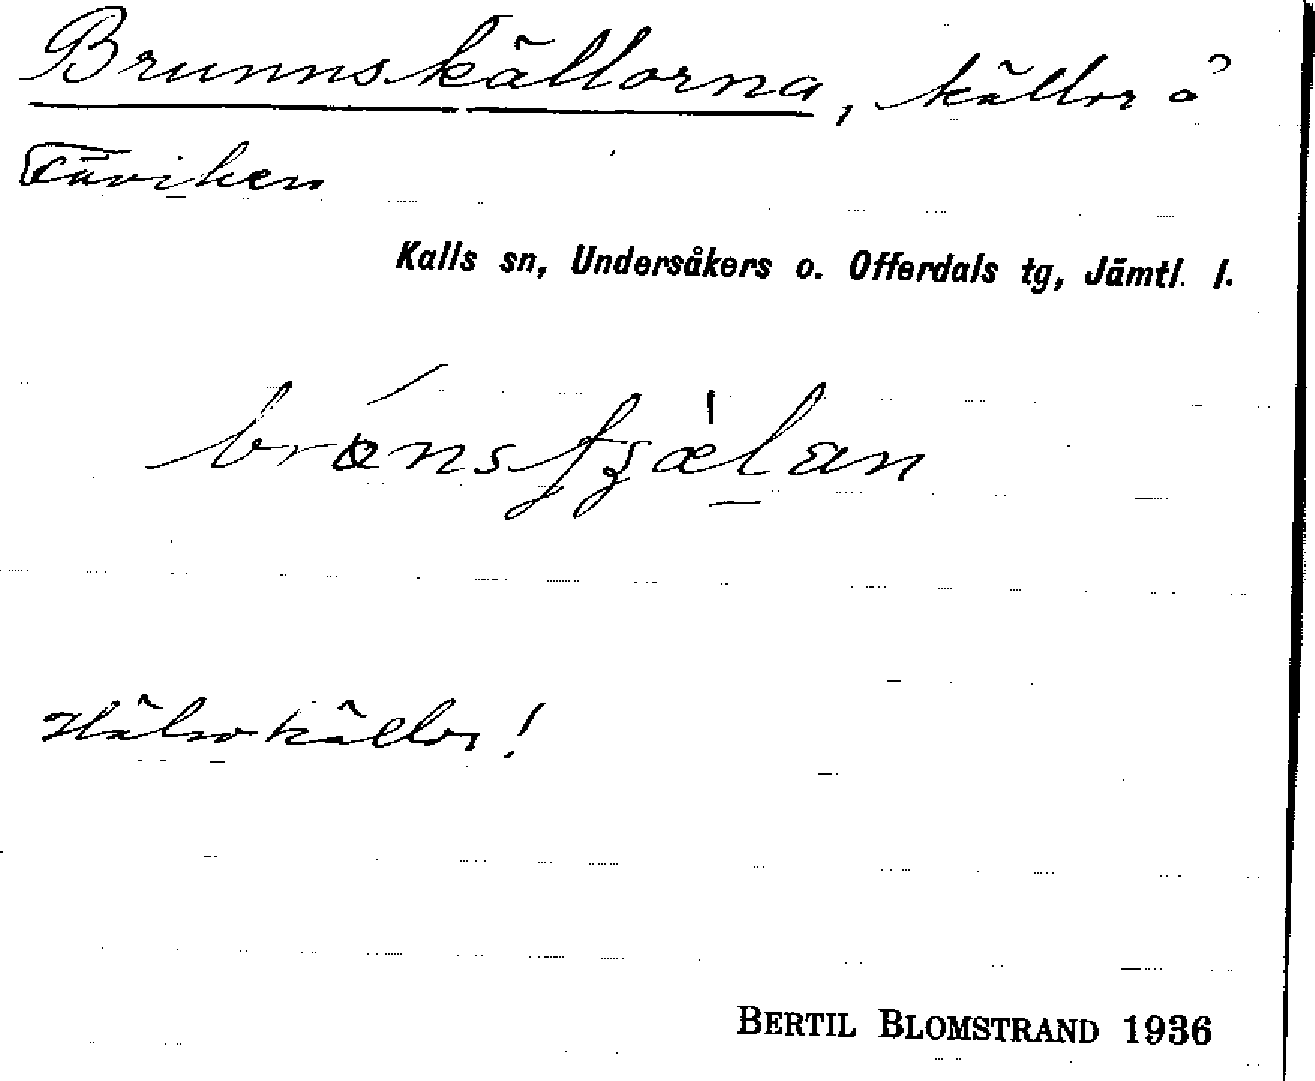 Brunnskällorna, källor å
Fäviken
Kalls sn, Undersåkers o. Offerdals tg, Jämtl. l.
Hälsokällor!
BERTIL BLOMSTRAND 1936